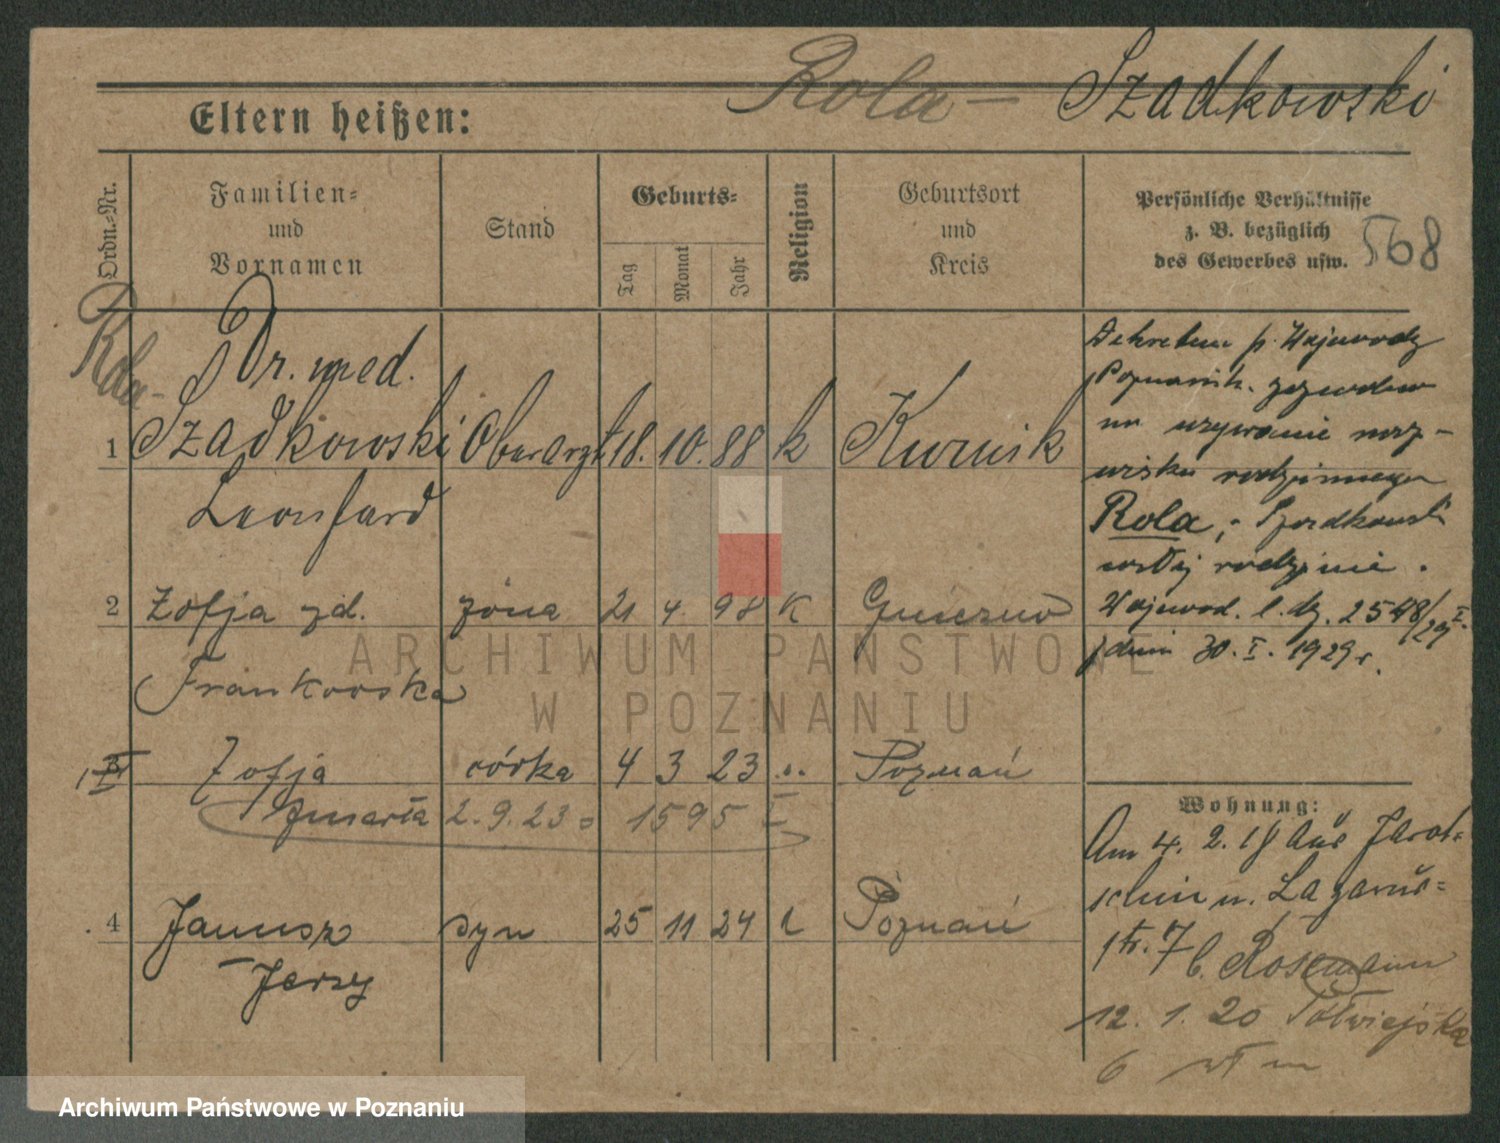 Rola - Szadkowski
Eltern heißen:
Ordn.-Nr.
Familien- und Vornamen
Stand
Geburts-
Tag
Monat
Jahr
Religion
Geburtsort und Kreis
Persönliche Verhältnisse
z. B. bezüglich
des Gewerbes usw.
568
Rola-
Dr. med.
1 Szadkowski Oberarzt 18. 10. 88 k Kurnik
Leonhard
2 Zofja zd. żona 21 4. 98 K Gniezno
Frankowska
3 Zofja córka 4 3 23 Poznań
zmarła 2.9.23 1595
4 Janusz syn 25 11 24 Poznań
-Jerzy
Dekretem p. Wojewody
Poznańsk. zezwolono
na używanie nazwiska rodzinnego
Rola - Szadkowski
rodzinie.
Wojewod. l. dz. 2548/29
z dnia 30. I. 1929 r.
Wohnung:
Am 4. 2. 18 aus Jarotschin n. Lazarus-
str. 7 b. Rosemann
12. 1. 20 Półwiejska
6
ARCHIWUM PAŃSTWOWE
W POZNANIU
Archiwum Państwowe w Poznaniu